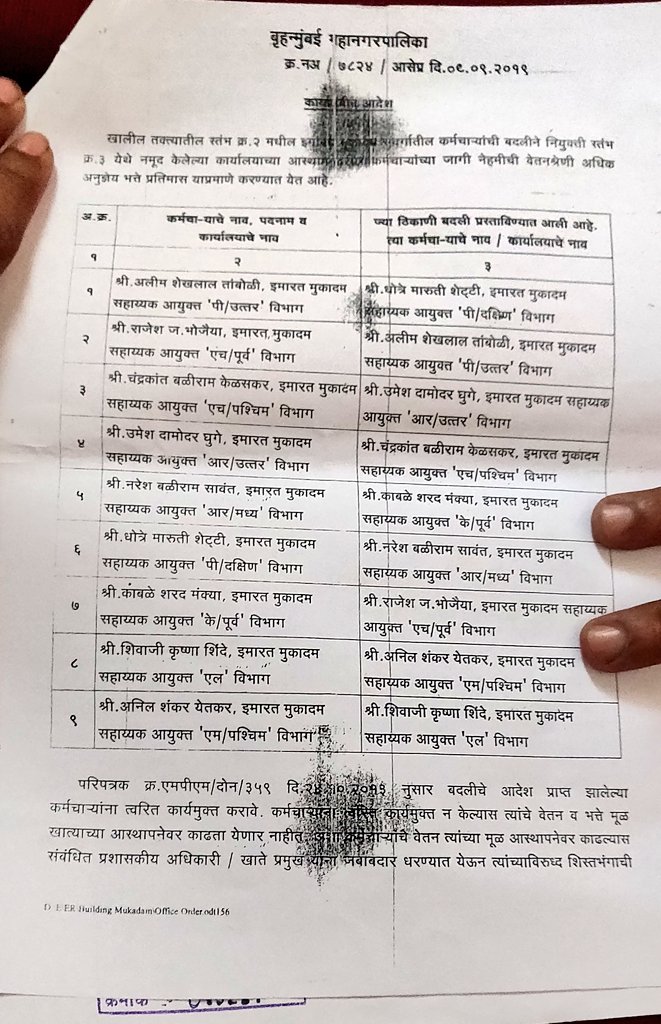 बृहन्मुंबई महानगरपालिका
क्र.नअ / ७८२४ / आसेप्र दि.०९.०९.२०१९
कार्यालयीन आदेश
खालील तक्त्यातील स्तंभ क्र.२ मधील इमारत मुकादम संवर्गातील कर्मचाऱ्यांची बदलीने नियुक्ती स्तंभ
क्र.३ येथे नमूद केलेल्या कार्यालयाच्या आस्थापनेवरील कर्मचाऱ्यांच्या जागी नेहमीची वेतनश्रेणी अधिक
अनुज्ञेय भत्ते प्रतिमास याप्रमाणे करण्यात येत आहे.
अ.क्र. कर्मचा-याचे नाव, पदनाम व ज्या ठिकाणी बदली प्रस्ताविण्यात आली आहे.
कार्यालयाचे नाव त्या कर्मचा-याचे नाव / कार्यालयाचे नाव
१ २ ३
१ श्री.अलीम शेखलाल तांबोळी, इमारत मुकादम श्री.धोत्रे मारुती शेट्टी, इमारत मुकादम
सहाय्यक आयुक्त 'पी/उत्तर' विभाग सहाय्यक आयुक्त 'पी/दक्षिण' विभाग
२ श्री.राजेश ज.भोजैया, इमारत मुकादम श्री.अलीम शेखलाल तांबोळी, इमारत मुकादम
सहाय्यक आयुक्त 'एच/पूर्व' विभाग सहाय्यक आयुक्त 'पी/उत्तर' विभाग
३ श्री.चंद्रकांत बळीराम केळसकर, इमारत मुकादम श्री.उमेश दामोदर घुगे, इमारत मुकादम सहाय्यक
सहाय्यक आयुक्त 'एच/पश्चिम' विभाग आयुक्त 'आर/उत्तर' विभाग
४ श्री.उमेश दामोदर घुगे, इमारत मुकादम श्री.चंद्रकांत बळीराम केळसकर, इमारत मुकादम
सहाय्यक आयुक्त 'आर/उत्तर' विभाग सहाय्यक आयुक्त 'एच/पश्चिम' विभाग
५ श्री.नरेश बळीराम सावंत, इमारत मुकादम श्री.काबळे शरद मंक्या, इमारत मुकादम
सहाय्यक आयुक्त 'आर/मध्य' विभाग सहाय्यक आयुक्त 'के/पूर्व' विभाग
६ श्री.धोत्रे मारुती शेट्टी, इमारत मुकादम श्री.नरेश बळीराम सावंत, इमारत मुकादम
सहाय्यक आयुक्त 'पी/दक्षिण' विभाग सहाय्यक आयुक्त 'आर/मध्य' विभाग
७ श्री.कांबळे शरद मंक्या, इमारत मुकादम श्री.राजेश ज.भोजैया, इमारत मुकादम सहाय्यक
सहाय्यक आयुक्त 'के/पूर्व' विभाग आयुक्त 'एच/पूर्व' विभाग
८ श्री.शिवाजी कृष्णा शिंदे, इमारत मुकादम श्री.अनिल शंकर येतकर, इमारत मुकादम
सहाय्यक आयुक्त 'एल' विभाग सहाय्यक आयुक्त 'एम/पश्चिम' विभाग
९ श्री.अनिल शंकर येतकर, इमारत मुकादम श्री.शिवाजी कृष्णा शिंदे, इमारत मुकादम
सहाय्यक आयुक्त 'एम/पश्चिम' विभाग सहाय्यक आयुक्त 'एल' विभाग
परिपत्रक क्र.एमपीएम/दोन/३५९ दि.२४.१०.२०१३ नुसार बदलीचे आदेश प्राप्त झालेल्या
कर्मचाऱ्यांना त्वरित कार्यमुक्त करावे. कर्मचाऱ्यांना त्वरित कार्यमुक्त न केल्यास त्यांचे वेतन व भत्ते मूळ
खात्याच्या आस्थापनेवर काढता येणार नाहीत. अशा कर्मचाऱ्यांचे वेतन त्यांच्या मूळ आस्थापनेवर काढल्यास
संबंधित प्रशासकीय अधिकारी / खाते प्रमुख यांना जबाबदार धरण्यात येऊन त्यांच्याविरुध्द शिस्तभंगाची
D E ER Building Mukadam\Office Order.odt156
क्रमांक